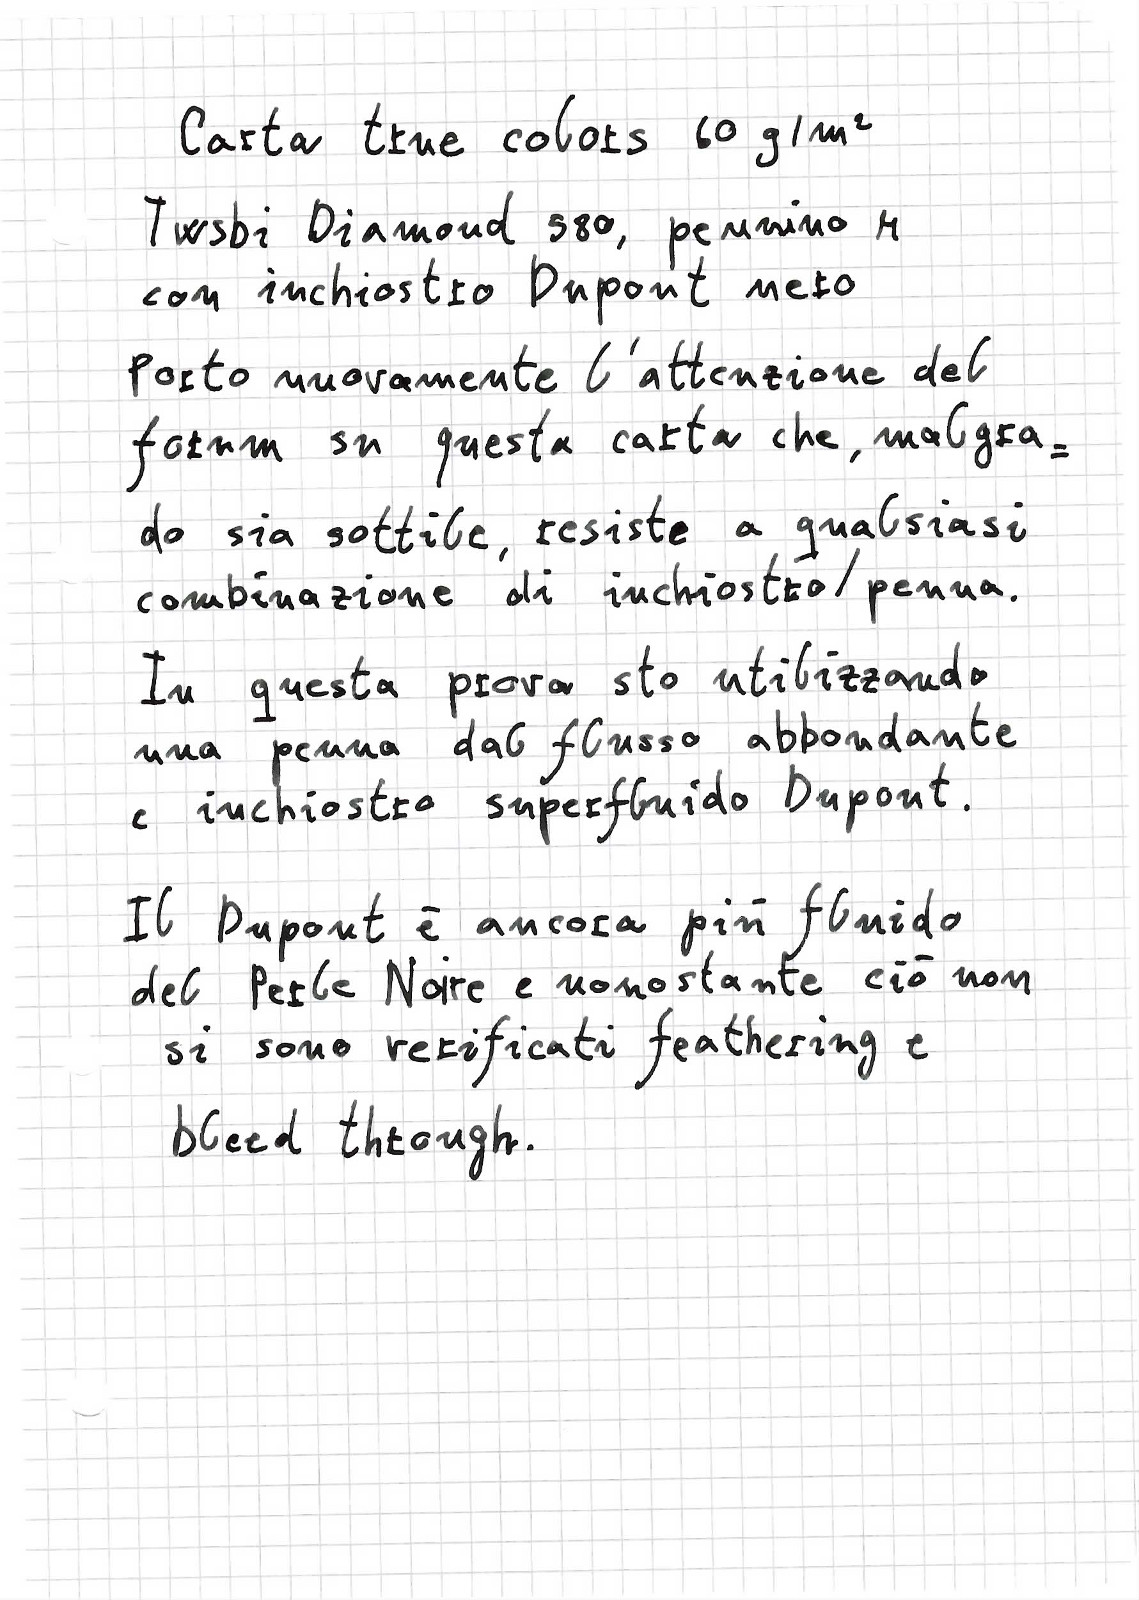 Carta true colors 60 g/m²
Twsbi Diamond 580, pennino M
con inchiostro Dupont nero
Porto nuovamente l'attenzione del
forum su questa carta che, malgra=
do sia sottile, resiste a qualsiasi
combinazione di inchiostro/penna.
In questa prova sto utilizzando
una penna dal flusso abbondante
e inchiostro superfluido Dupont.
Il Dupont è ancora più fluido
del Perle Noire e nonostante ciò non
si sono verificati feathering e
bleed through.